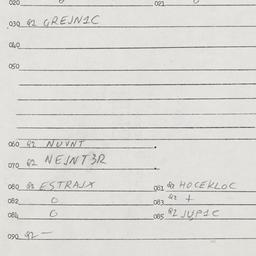 020 021
030 92 GREJN1C
040
050
060 92 NUVNT
070 92 NEJNT3R
080 93 ESTRAJX 081 93 HOCEKLOC
082 0 083 92 +
084 0 085 92 JUP1C
090 92 —